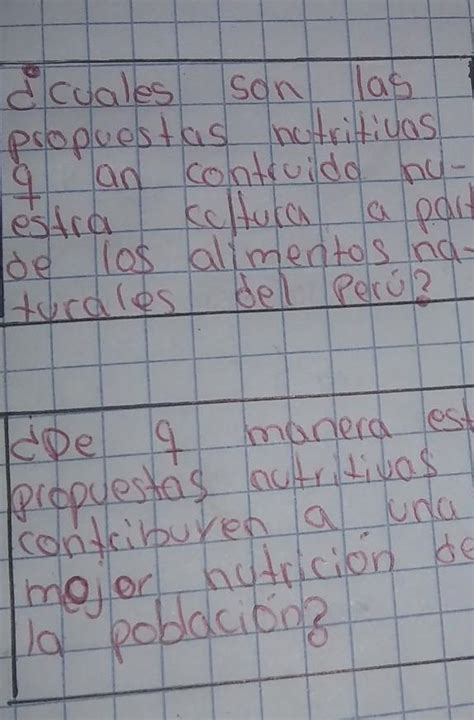 ¿cuales son las
propuestas nutritivas
q an contruido nu-
estra cultura a part
de los alimentos na-
turales del Perú?
¿De q manera est
propuestas nutritivas
contribuyen a una
mejor nutrición de
la población?